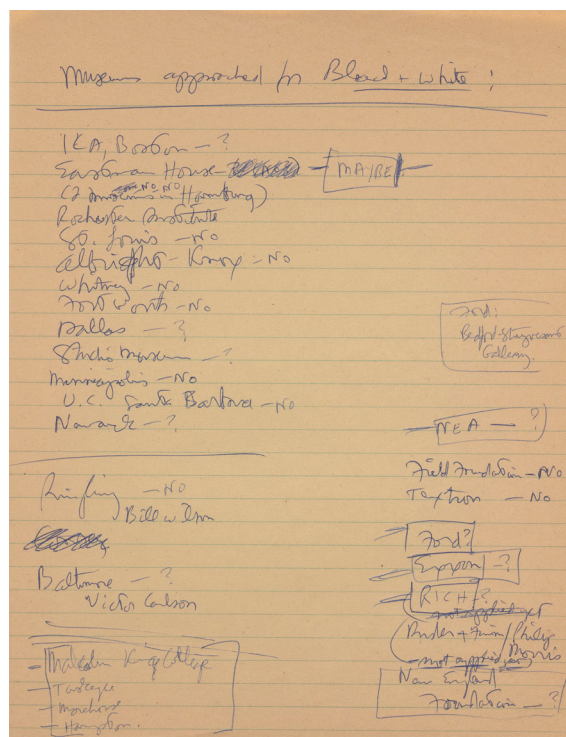 Museums approached for Black + White:
ICA, Boston - ?
Eastman House - MAYBE
(2 museums in Hamburg) NO, NO
Rochester Institute
St. Louis - NO
Albright - Knox - NO
Whitney - NO
Fort Worth - NO
Dallas - ?
Studio Museum - ?
Minneapolis - NO
U.C. Santa Barbara - NO
Newark - ?
Ringling - NO
Bill Wilson
Baltimore - ?
Victor Carlson
Malcolm King College
- Tuskegee
- Morehouse
- Hampton.
Ford:
Bedford-Stuyvesant
Gallery.
NEA - ?
Field Foundation - NO
Textron - NO
Ford?
Exxon - ?
RICH - ?
not applied yet
Philip
Morris
- not applied yet
New England
Foundation - ?